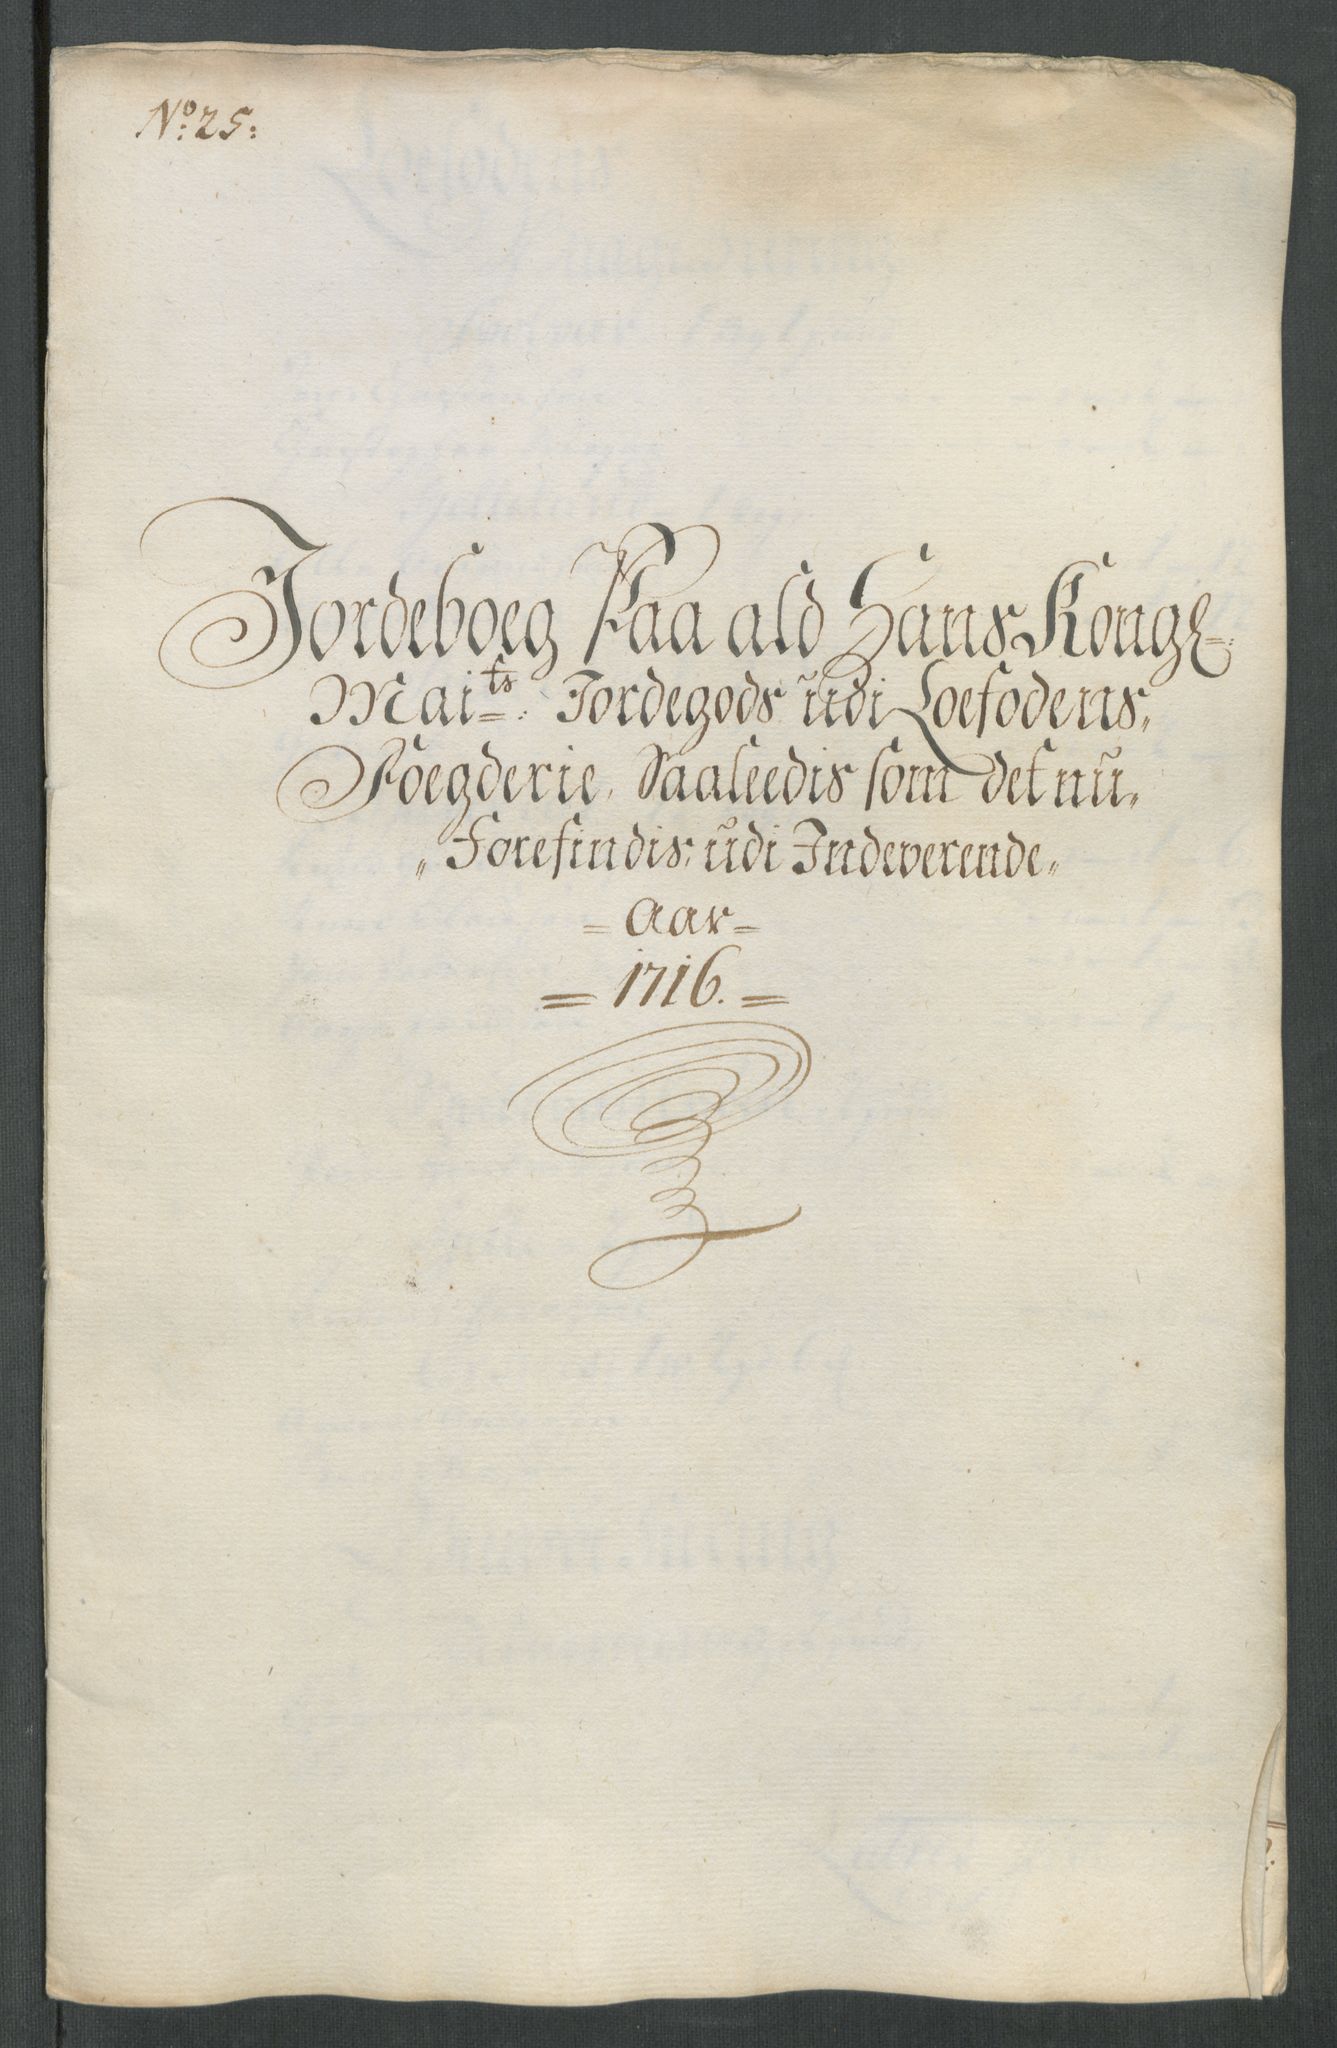 No: 25:
Jordeboeg Paa ald Hans Kongl:
Maits: Jordegods udi Loefodens
Foegderie, Saaleedis som det nu
Forefindis, udi Indeverende
Aar
1716.